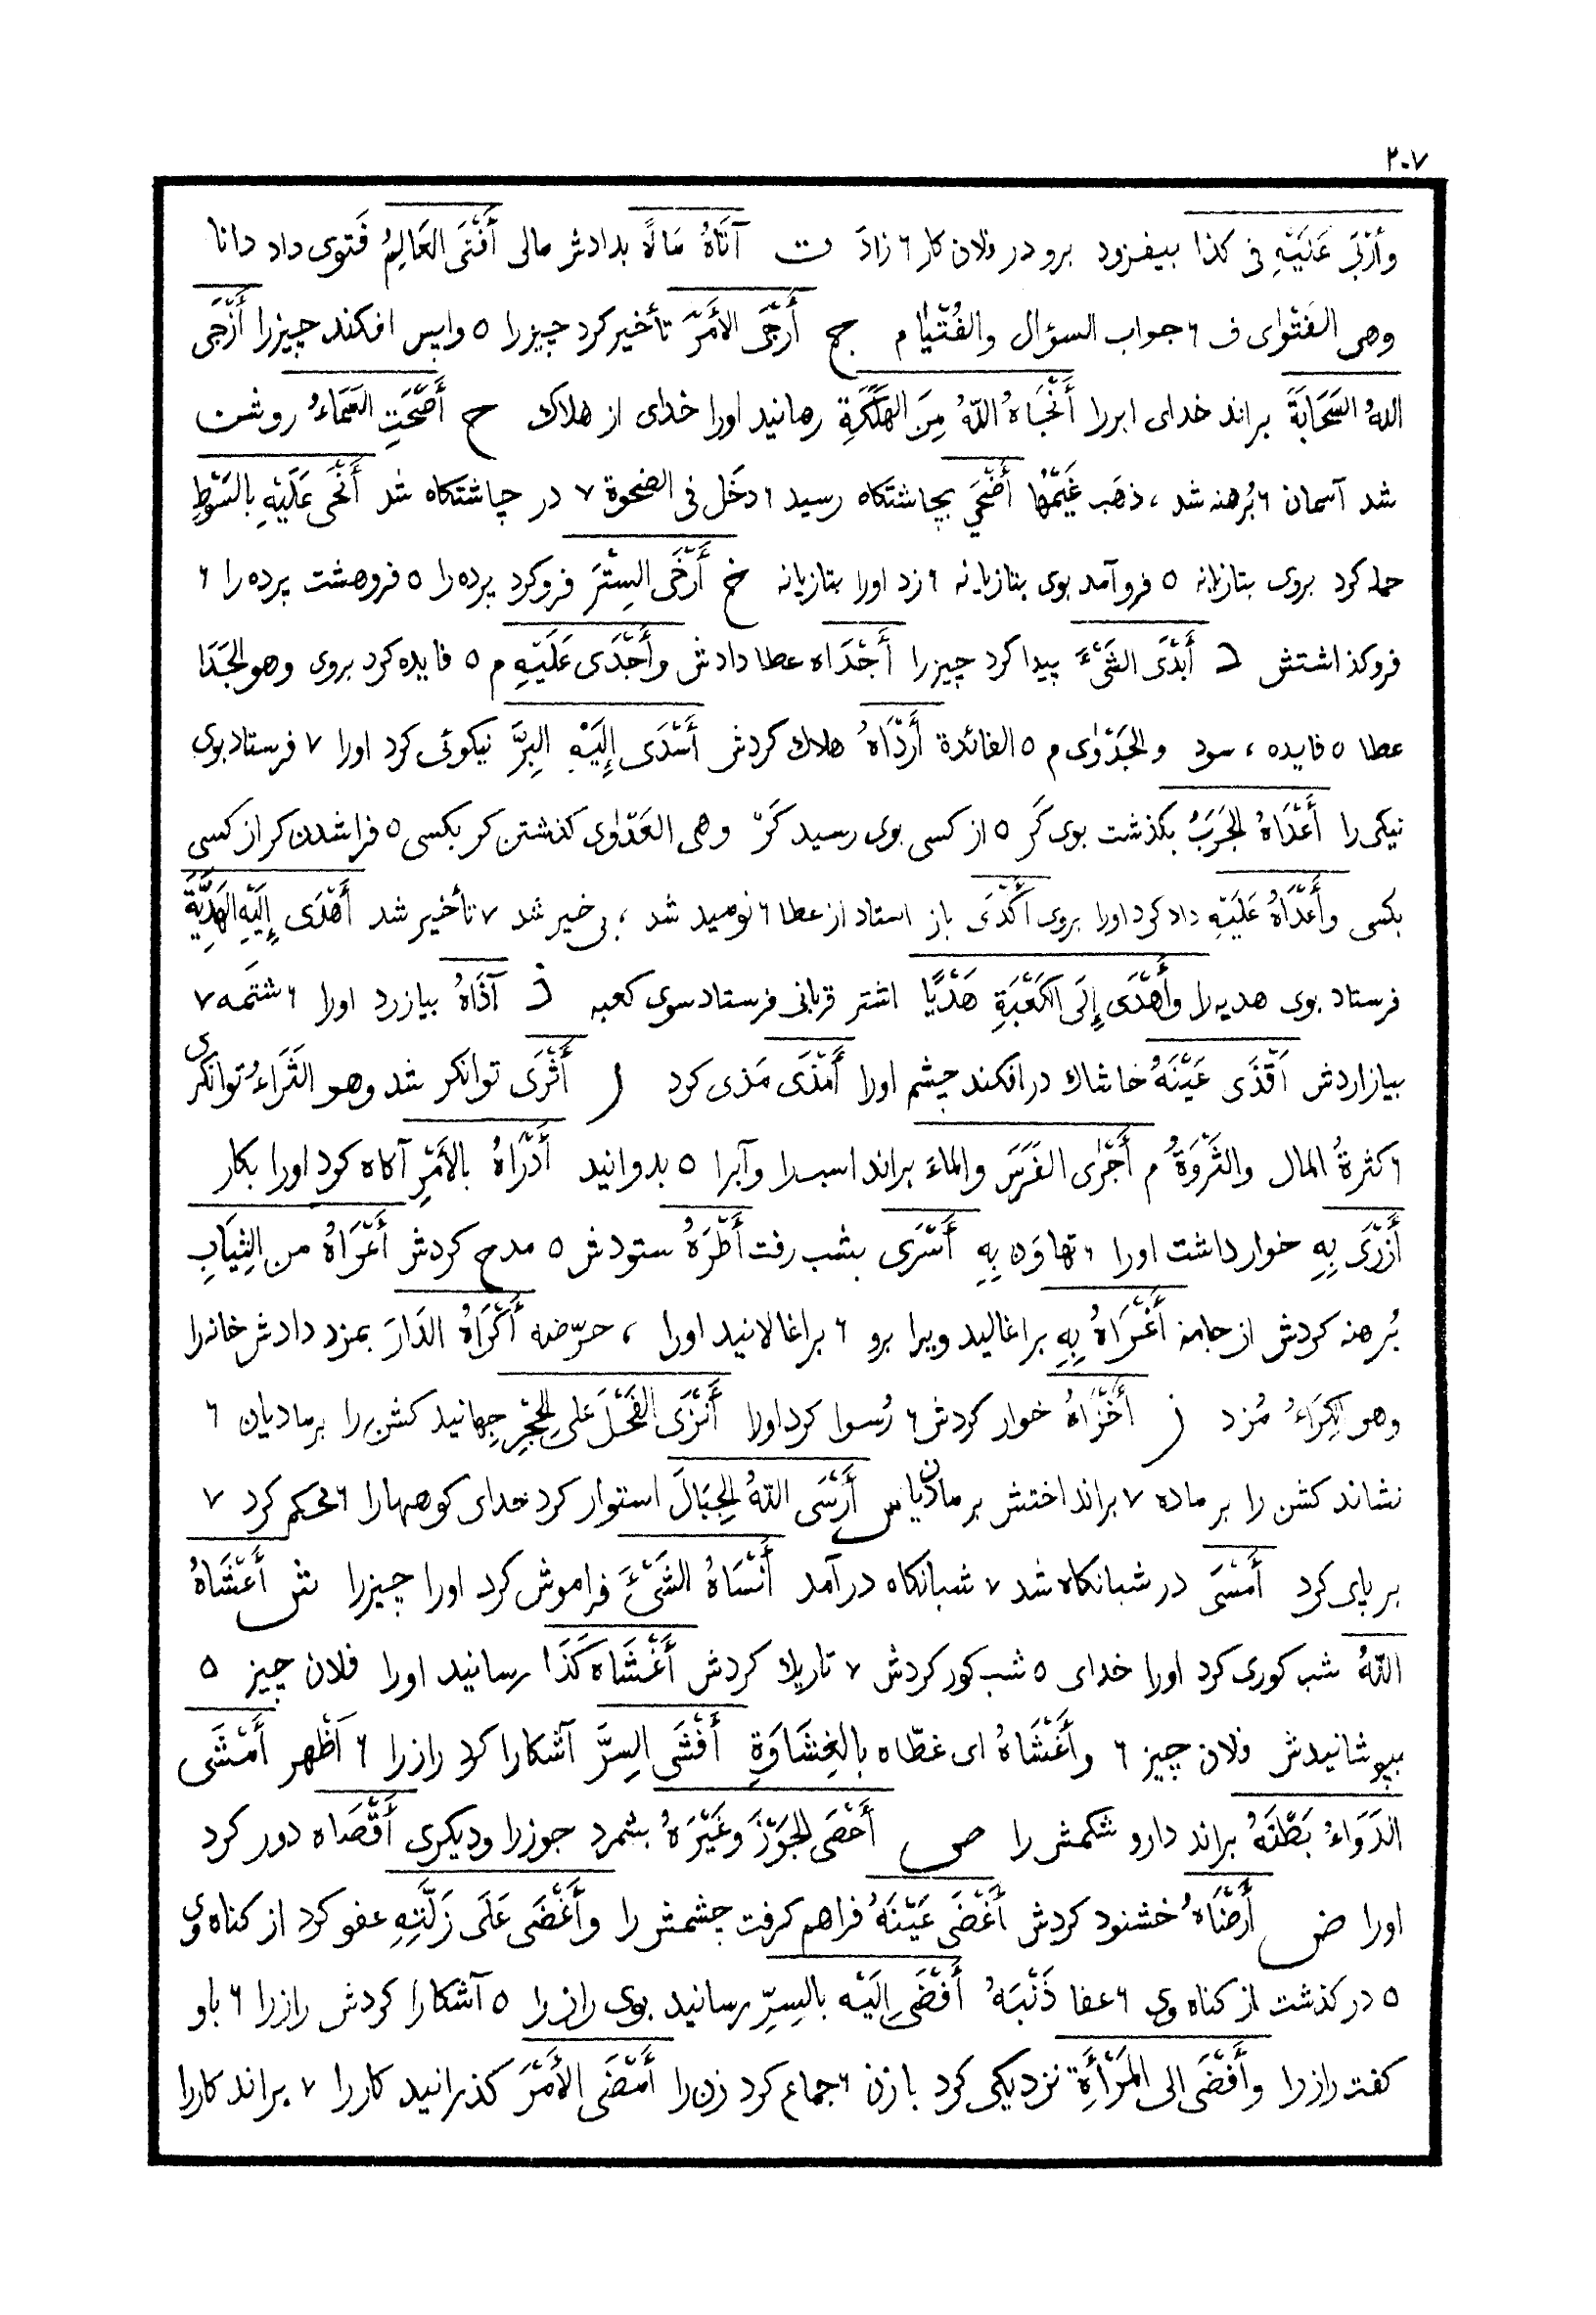 ٢٠٧
وأَرْبَى عَلَيْهِ فى كذا بيفزود برو در فلان كار ٦ زادَ ت آتَاهُ مَالًا بدادش مالى أَفْتَى العَالِمُ فَتوى داد دانا
وهى الفَتْوٰى ف ٦ جواب السؤال والفُتْيَا م ج أَرْجَى الأَمْرَ تأخير كرد چيزرا ٥ واپس افكند چيزرا أَزْجَى
اللهُ السَحَابَةَ براند خداى ابررا أَنْجَاهُ اللهُ مِنَ الهَلَكَةِ رهانيد اورا خداى از هلاك ح أَصْحَتِ السَمَاءُ روشن
شد آسمان ٦ بُرهنه شد ، ذهَب غَيْمُهَا أَضْحَي بچاشتكاه رسيد ٦ دخَل فى الضحوة ٧ در چاشتكاه شد أَنْحَى عَلَيْهِ بالسَوْطِ
حمله كرد بروى بتازيانه ٥ فروآمد بوى بتازيانه ٦ زد اورا بتازيانه خ أَرْخَى السِتْرَ فروكرد پرده را ٥ فروهشت پرده را ٦
فروكذاشتش د أَبْدَى الشَىْءَ پيدا كرد چيزرا أَجْدَاه عطا دادش وأَجْدَى عَلَيْهِ م ٥ فايده كرد بروى وهو الجَدَا
عطا ٥ فايده ، سود والجَدْوٰى م ٥ الفائدة أَرْدَاهُ هلاك كردش أَسْدَى إِلَيْهِ البِرَّ نيكوئى كرد اورا ٧ فرستاد بوى
نيكى را أَعْدَاهُ الجَرَبُ بكذشت بوى كَر ٥ از كسى بوى رسيد كَرْ وهى العَدْوٰى كذشتن كر بكسى ٥ فرا شدن كر از كسى
بكسى وأَعْدَاهُ عَلَيْهِ داد كرد اورا بروى أَكْدَى باز استاد از عطا ٦ نوميد شد ، بى خير شد ٧ تأخير شد أَهْدَى إِلَيْهِ الهَدِيَّةَ
فرستاد بوى هديه را وأَهْدَى إِلَى الكَعْبَةِ هَدْيًا اشتر قربانى فرستاد سوى كعبه ذ آذَاهُ بيازرد اورا ٦ شتَمه ٧
بيازاردش أَقْذَى عَيْنَهُ خاشاك درافكند چشم اورا أَمْذَى مَذى كرد ر أَثْرَى توانكر شد وهو الثَرَاءُ توانكرى
٦ كثرةُ المال والثَرْوَةُ م أَجْرٰى الفَرَسَ والماءَ براند اسب را وآبرا ٥ بدوانيد أَدْرَاهُ بالأَمْرِ آكاه كرد اورا بكار
أَزْرَى بِهِ خوار داشت اورا ٦ تهاوَن بِهِ أَسْرَى بشب رفت أَطْرَهُ ستودش ٥ مدح كردش أَعْرَاهُ من الثِيَابِ
بُرهنه كردش از جامه أَغْرَاهُ بِهِ براغاليد ويرا برو ٦ براغالانيد اورا ، حرّضه أَكْرَاهُ الدَارَ بمزد دادش خانه را
وهو الكِرَاءُ مُزد ز أَخْزَاهُ خوار كردش ٦ رُسوا كرد اورا أَنْزَى الفَحْلَ على الحِجْرِ جهانيد كشن را برماديان ٦
نشاند كشن را بر ماده ٧ برانداختش بر ماديان س أَرْسَى اللهُ الجِبَالَ استوار كرد خداى كوههارا ٦ محكم كرد ٧
بر پاى كرد أَمْسَى در شبانكاه شد ٧ شبانكاه درآمد أَنْسَاهُ الشَىْءَ فراموش كرد اورا چيزرا ش أَعْشَاهُ
اللهُ شب كورى كرد اورا خداى ٥ شب كور كردش ٧ تاريك كردش أَغْشَاه كَذَا رسانيد اورا فلان چيز ٥
بپوشانيدش فلان چيز ٦ وأَغْشَاهُ اى غطّاه بالغِشَاوَةِ أَفْشَى السِرَّ آشكارا كرد رازرا ٦ أَظْهر أَمْشَى
الدَوَاءُ بَطْنَهُ براند دارو شكمش را ص أَحْصَى الجَوْزَ وغَيْرَهُ بشمرد جوزرا وديكرى أَقْصَاه دور كرد
اورا ض أَرْضَاهُ خشنود كردش أَغْضَى عَيْنَهُ فراهم كرفت چشمش را وأَغْضَى عَلَى زَلَّتِهِ عفو كرد از كناه وى
٥ در كذشت از كناه وى ٦ عفا ذَنْبَهُ أَفْضَى إِلَيْه بالسِرِّ رسانيد بوى رازرا ٥ آشكارا كردش رازرا ٦ باو
كفت رازرا وأَفْضَى الى المَرْأَةِ نزديكى كرد با زن ٦ جماع كرد زن را أَمْضَى الأَمْرَ كذرانيد كاررا ٧ براند كاررا